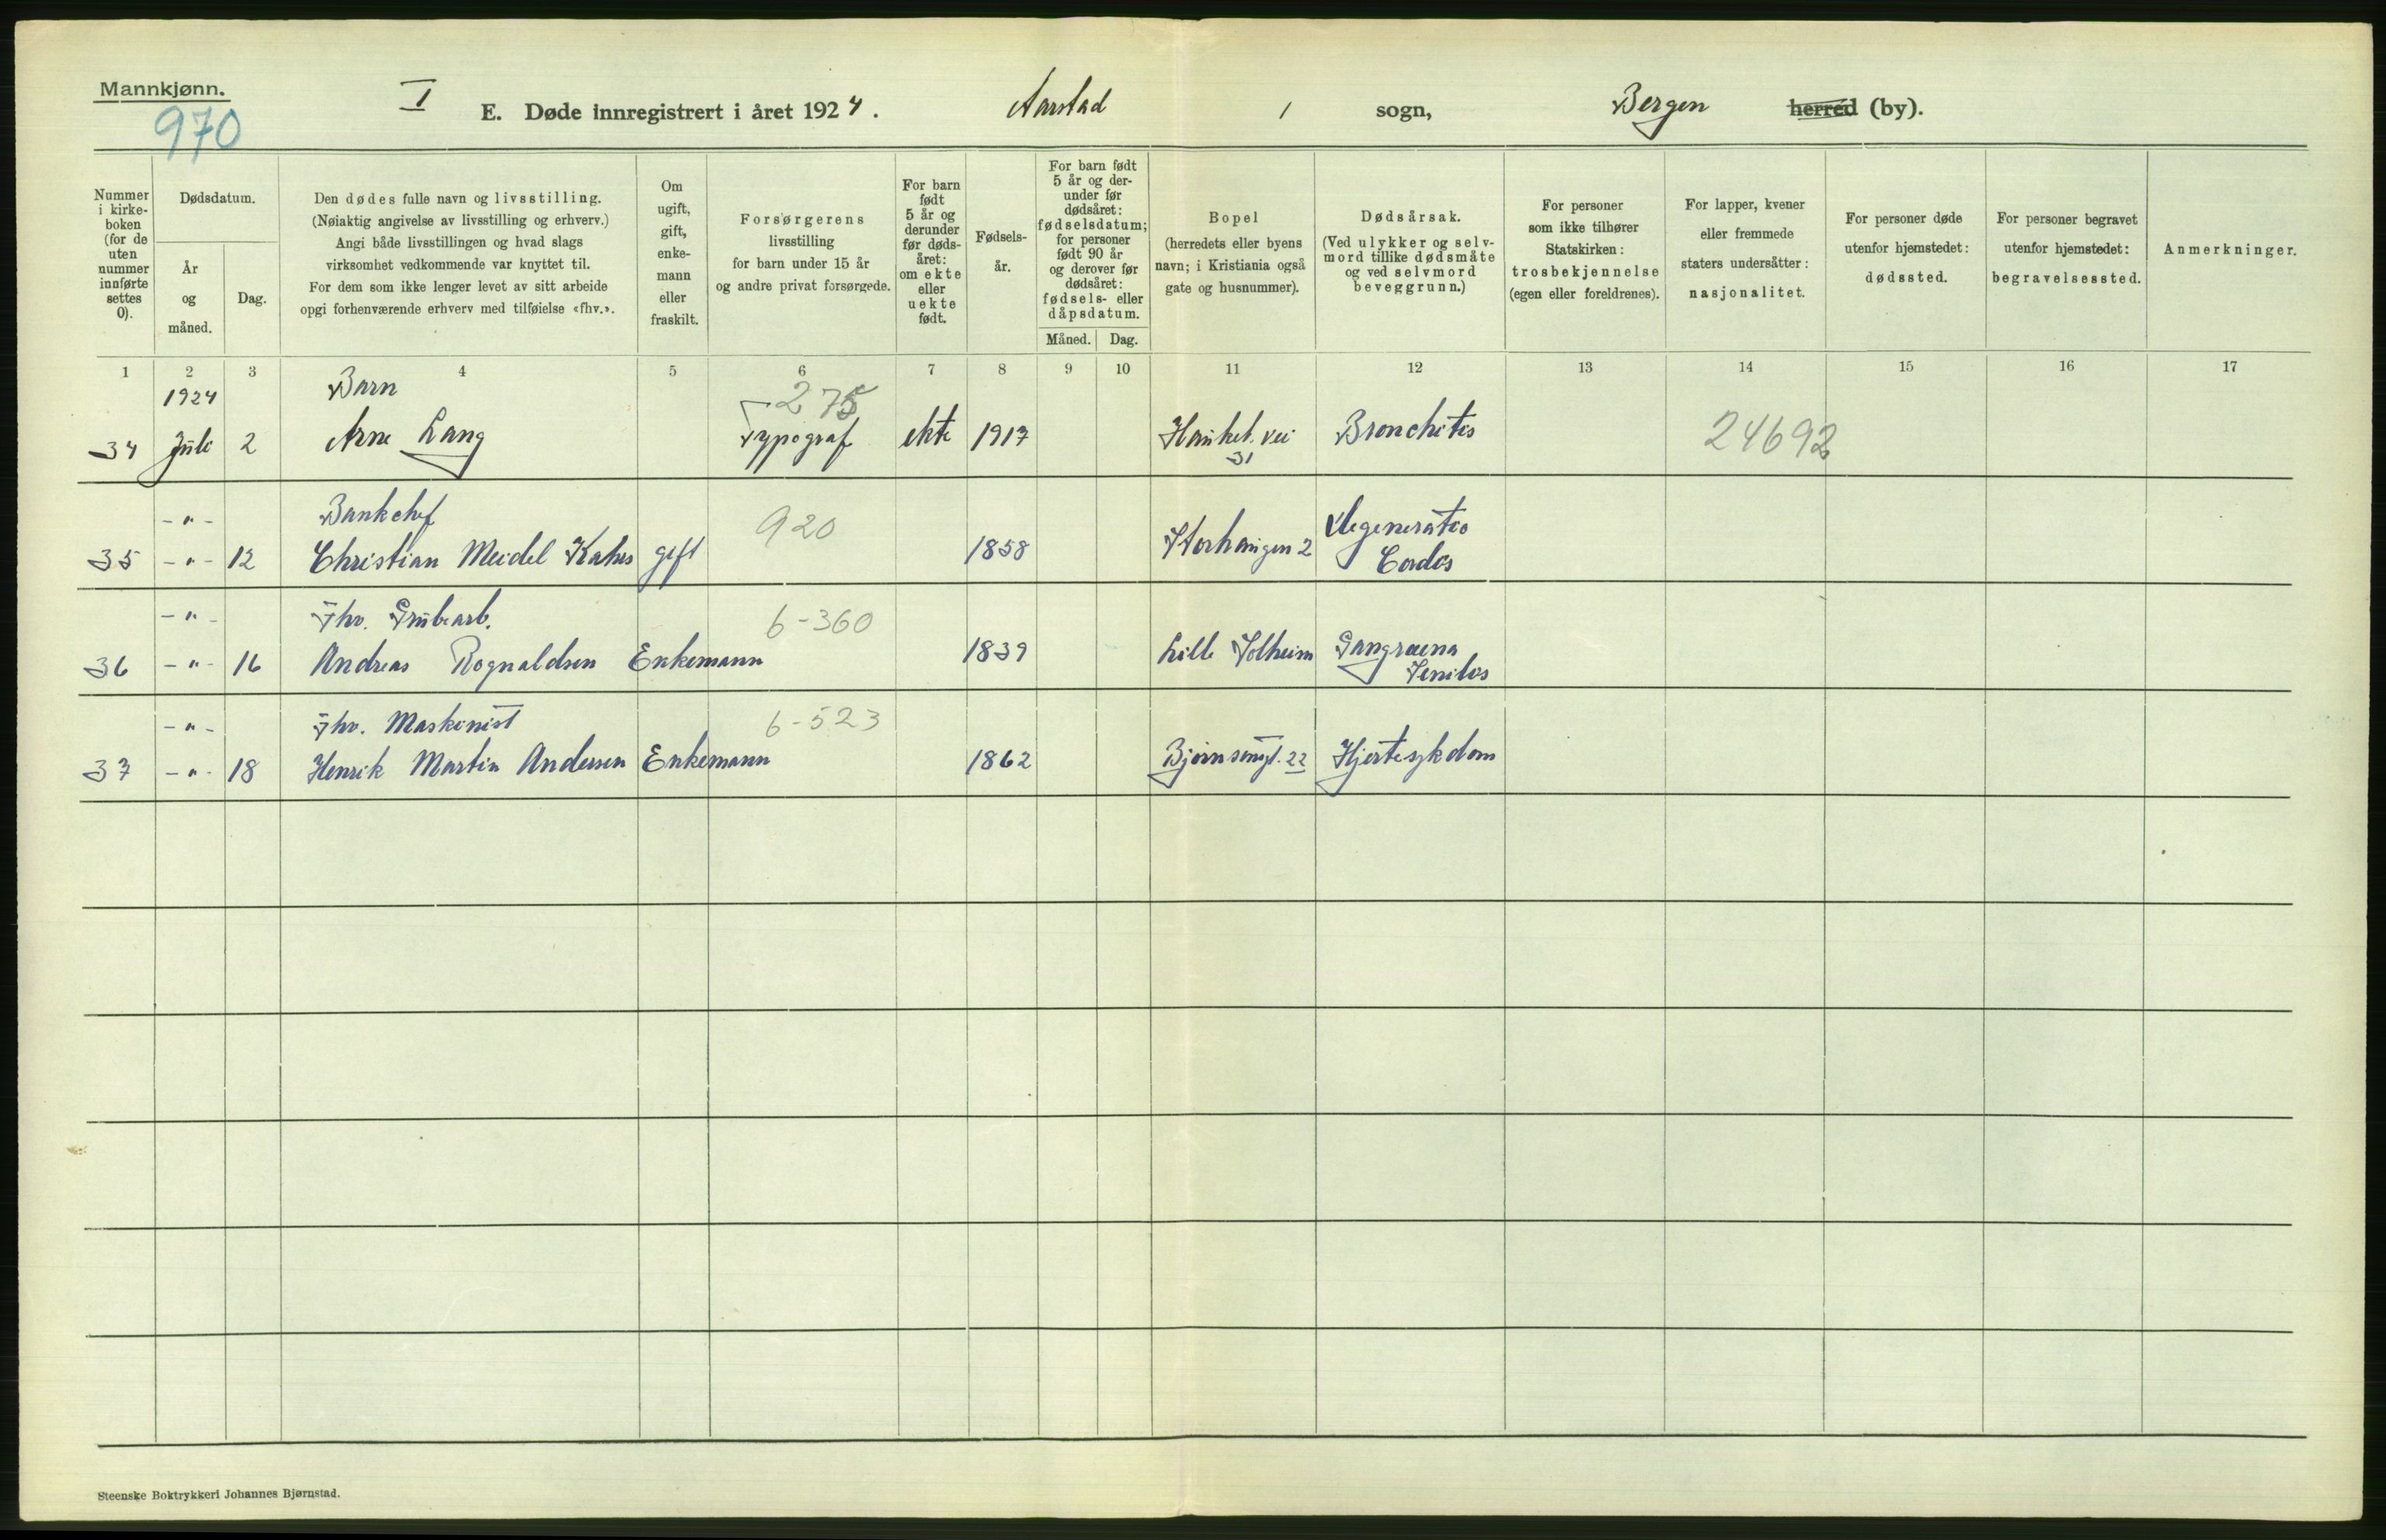 Mannkjønn.
970
I E. Døde innregistrert i året 1924. Aarstad 1 sogn, Bergen herred (by).
Nummer i kirke- boken (for de uten nummer innførte settes 0).
Dødsdatum.
År og måned.
Dag.
Den dødes fulle navn og livsstilling.
(Nøiaktig angivelse av livsstilling og erhverv.)
Angi både livsstillingen og hvad slags
virksomhet vedkommende var knyttet til.
For dem som ikke lenger levet av sitt arbeide
opgi forhenværende erhverv med tilføielse «fhv.».
Om ugift, gift, enke- mann eller fraskilt.
Forsørgerens
livsstilling
for barn under 15 år
og andre privat forsørgede.
For barn født 5 år og derunder før døds- året: om ekte eller uekte født.
Fødsels- år.
For barn født 5 år og der- under før dødsåret: fødselsdatum; for personer født 90 år og derover før dødsåret: fødsels- eller dåpsdatum.
Måned. Dag.
Bopel
(herredets eller byens
navn; i Kristiania også
gate og husnummer).
Dødsårsak.
(Ved ulykker og selv-
mord tillike dødsmåte
og ved selvmord
beveggrunn.)
For personer
som ikke tilhører
Statskirken:
trosbekjennelse
(egen eller foreldrenes).
For lapper, kvener
eller fremmede
staters undersåtter:
nasjonalitet.
For personer døde
utenfor hjemstedet:
dødssted.
For personer begravet
utenfor hjemstedet:
begravelsessted.
Anmerkninger.
1 2 3 4 5 6 7 8 9 10 11 12 13 14 15 16 17
1924 Barn 275
34 Juli 2 Arne Lang Typograf ekte 1917 Haukel. vei Bronchitis 24692
31
-"- Bankchef 920 Degeneratio
35 -"- 12 Christian Meidel Kahrs gift 1858 Storhaugen 2 Cordis
-"- Fhv. Grubearb. 6-360
36 -"- 16 Andreas Rognaldsen Enkemann 1839 Lille Solheim Gangræna
Senilis
-"- Fhv. Maskinist 6-523
37 -"- 18 Henrik Martin Andersen Enkemann 1862 Bjørnsonsgt. 22 Hjertesykdom
Steenske Boktrykkeri Johannes Bjørnstad.